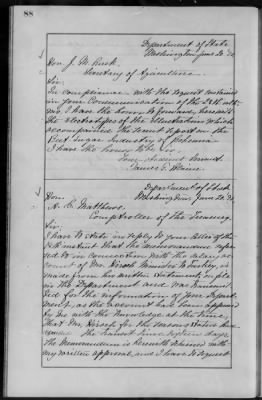 88
Department of State
Washington June 20 '90
Hon. J. M. Rusk.
Secretary of Agriculture.
Sir:
In compliance with the request contained
in your Communication of the
I have the honor to forward,
the electrotypes of the illustrations which
accompanied the recent report on the
Beet Sugar Industry of Bohemia
I have the honor to be, Sir,
Your obedient servant
James G. Blaine.
Department of State
Washington June 20. 90
Hon.
A. C. Matthews.
Comptroller of the Treasury.
Sir:
I have to state in reply to your letter of the
instant that the memorandum refer
red to in connection with the salary ac
count of Mr. Hirsch Minister to Turkey, is
made from his written statement, on file
in the Department and was transmit
ted for the information of your Depart
ment, as the account has been approved
by me with the knowledge at the time,
that Mr. Hirsch for the reasons stated
the transit time eighteen days.
The Memorandum is herewith returned with
my written approval, and I have to request